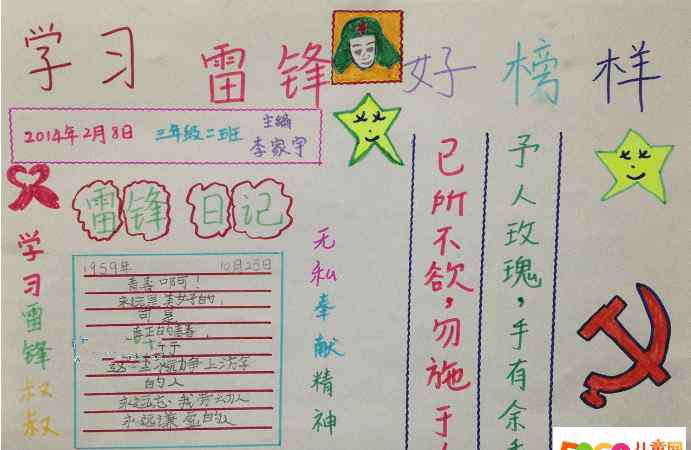 学习雷锋好榜样
2014年2月8日 三年级二班
主编
李家宇
雷锋日记
学习雷锋叔叔
1959年 10月25日
青春啊!
永远是美好的,
真正的青春,
的人
无私奉献精神
己所不欲,勿施于
予人玫瑰,手有余
儿童网